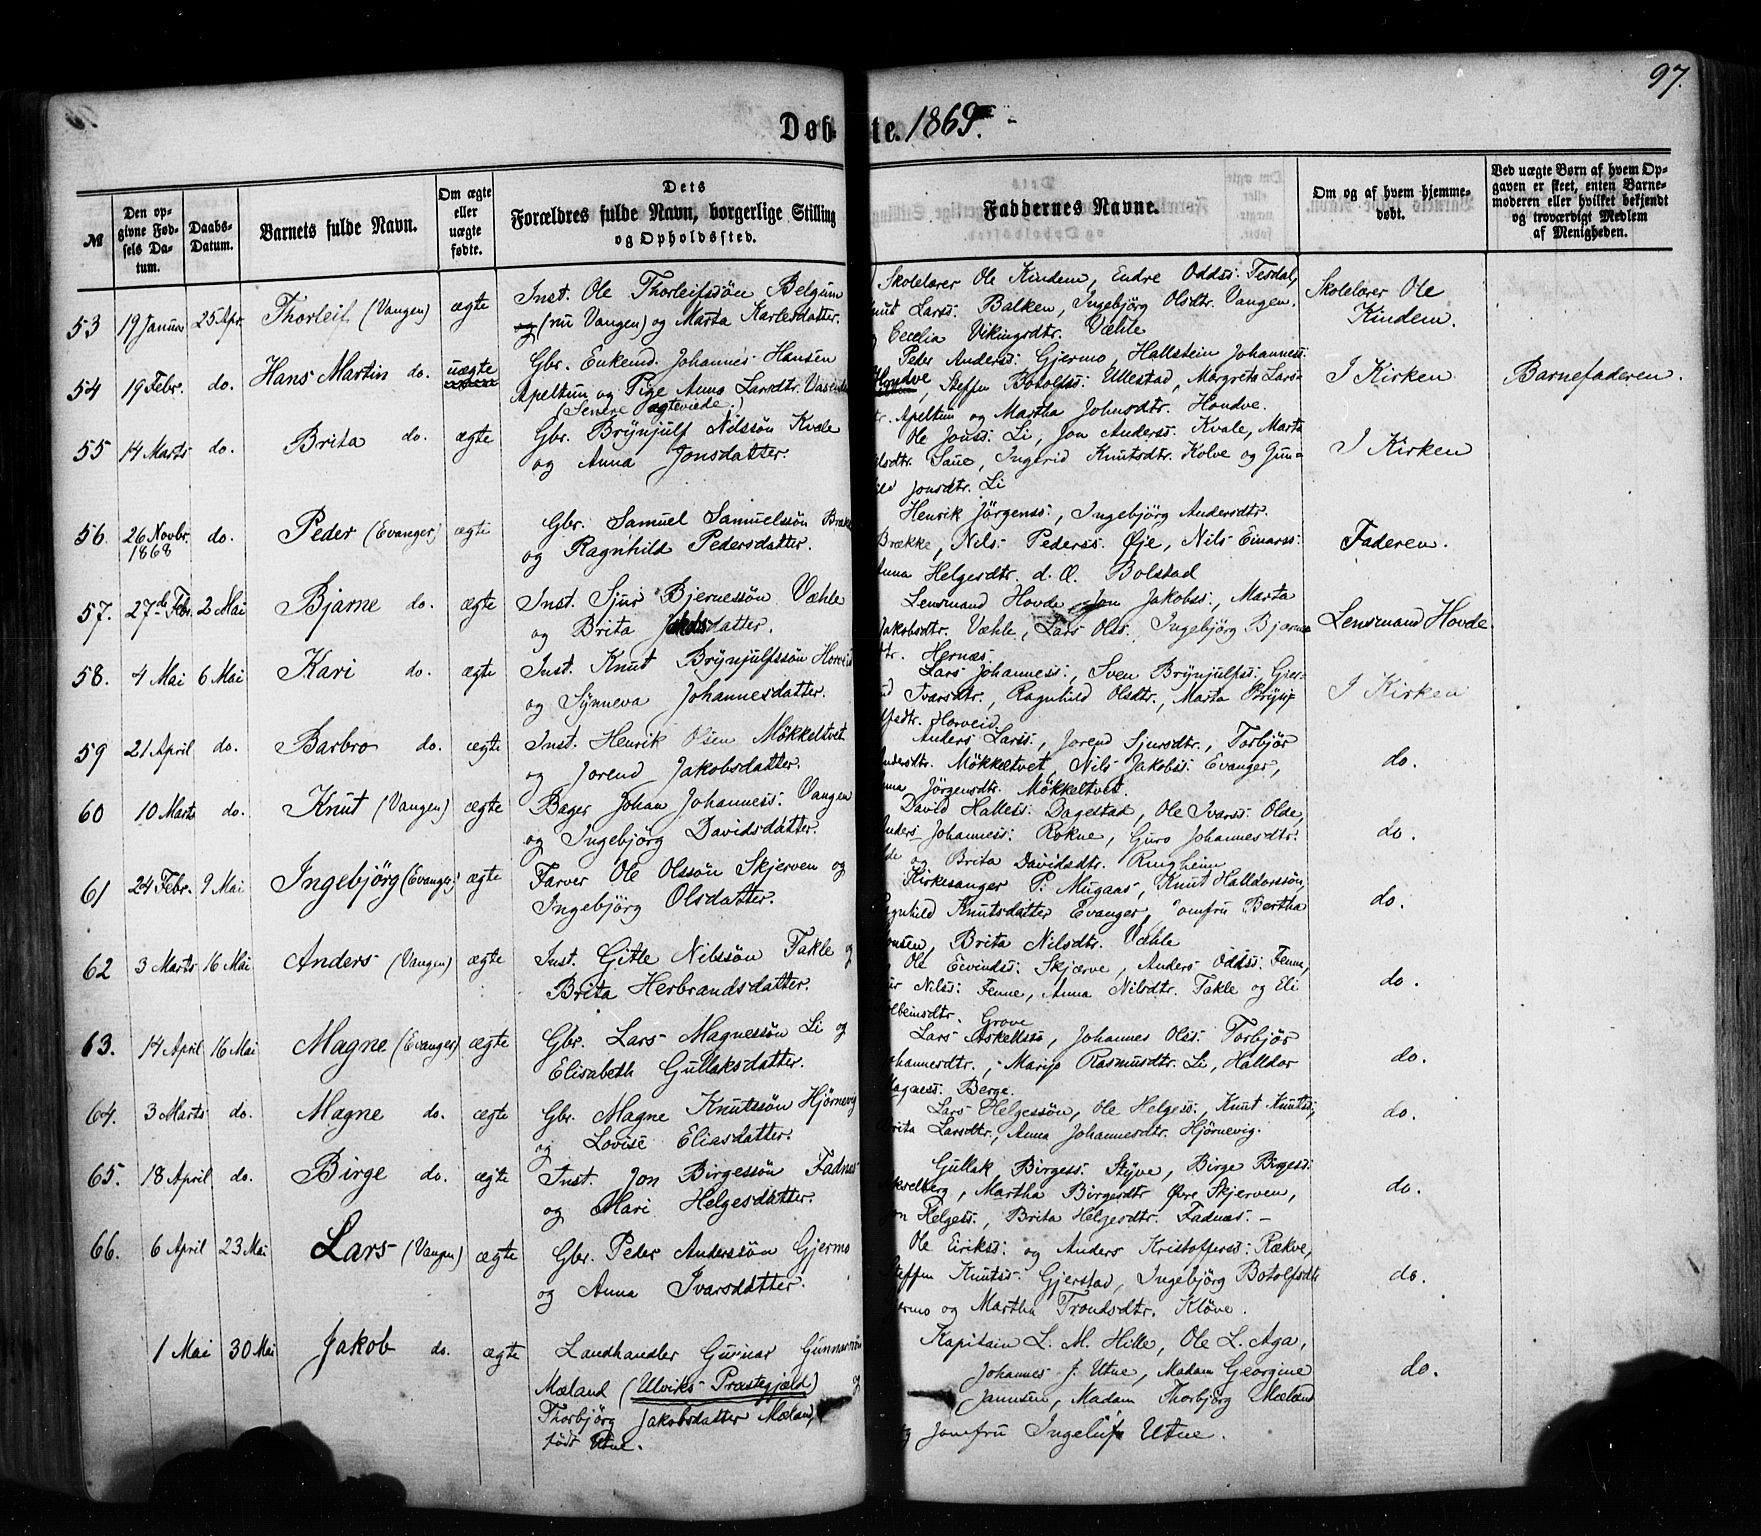 97.
Døbte. 1869.
№
Den opgivne Fødsels Datum.
Daabs-Datum.
Barnets fulde Navn.
Om ægte eller uægte fødte.
Dets Forældres fulde Navn, borgerlige Stilling og Opholdssted.
Faddernes Navne.
Om og af hvem hjemmedøbt.
Ved uægte Børn af hvem Opgaven er skeet, enten Barnemoderen eller hvilket bekjendt og troværdigt Medlem af Menigheden.
53 19 Januar 25 Apr. Thorleif (Vangen) ægte
Inst. Ole Thorleifssön Belgum
og (nu Vangen) og Marta Karlesdatter.
Skolelærer Ole Kindem, Endre Oddss: Tesdal,
Knut Larss. Balken, Ingebjörg Olsdtr. Vangen.
Cecelia Vikingsdtr. Væhle
Skolelærer Ole
Kindem.
54 19 Febr. do. Hans Martin do. uægte
Gbr. Enkemd. Johannes Hansen
Apeltun og Pige Anna Larsdtr. Vasenden
(Senere ægteviede.)
Peder Anderss: Gjermo, Hallstein Johanness:
Hondve, Steffen Botolfss: Ullestad, Margreta Lars-
dtr. Apeltun og Martha Johnsdtr. Hondve.
I Kirken
Barnefaderen.
55 14 Marts do. Brita do. ægte
Gbr. Brÿnjulf Nilssön Kvale
og Anna Jonsdatter.
Ole Jonss: Li, Jon Anderss: Kvale, Marta
Nilsdtr. Saue, Ingerid Knutsdtr. Kolve og Gun-
ild Jonsdtr. Li
I Kirken
56. 26 Novbr. 1868 do. Peder (Evanger) ægte
Gbr. Samuel Samuelssön Brække
og Ragnhild Pedersdatter.
Henrik Jörgenss:, Ingebjörg Andersdtr.
Brække, Nils Pederss. Øje, Nils Einarss:
Anna Helgesdtr. d. Æ. Bolstad
Faderen.
57. 27de Febr. 2 Mai Bjarne do. ægte
Inst. Sjur Bjernessön Væhle
og Brita Jakobsdatter.
Lensmand Hovde, Jon Jakobss:, Marta
Jakobsdtr. Væhle, Lars Olss. Ingebjörg Bjarne-
dtr. Hernæs.
Lensmand Hovde.
58. 4 Mai 6 Mai Kari do. ægte
Inst. Knut Brÿnjulfssön Horveid
og Synneva Johannesdatter.
Lars Johanness:, Sven Brÿnjulfss:, Gjer-
ud Ivarsdtr., Ragnhild Olsdtr., Marta Brÿnj-
lfsdtr. Horveid.
I Kirken
59 21 April do. Barbro do. ægte
Inst. Henrik Olsen Mökkeltvet
og Jorend Jakobsdatter.
Anders Larss:, Jorend Sjursdtr., Torbjör
Andersdtr. Mökkeltvet, Nils Jakobss: Evanger,
Anna Jörgensdtr. Mökkeltvet.
do.
60 10 Marts do. Knut (Vangen) ægte
Bager Johan Johanness. Vangen
og Ingebjörg Davidsdatter.
David Halless: Dagestad, Ole Ivarss: Olde,
Anders Johanness: Rokne, Guro Johannesdtr.
lde og Brita Davidsdtr. Ringheim
do.
61 24 Febr. 9 Mai Ingebjörg (Evanger) ægte
Farver Ole Olssön Skjerven og
Ingebjörg Olsdatter.
Kirkesanger P. Mugaas, Knut Halldorssön,
Ragnhild Knutsdatter Evanger, Jomfru Bertha
Brita Nilsdtr. Væhle
do.
62 3 Marts 16 Mai Anders (Vangen) ægte
Inst. Gitle Nilssön Takle og
Brita Herbrandsdatter.
Ole Eivindss: Skjærve, Anders Oddss: Fenne,
ur Nilss: Fenne, Anna Nilsdtr. Takle og Eli
Kolbeinsdtr. Grove
do.
63. 14 April 16 Mai Magne (Evanger) ægte
Gbr. Lars Magnessön Li og
Elisabeth Gullaksdatter.
Lars Askellss, Johannes Olss: Torbjör
Johannesdtr., Mario Rasmusdtr. Li, Halldor
Magness: Berge.
do.
64. 3 Marts do. Magne do. ægte
Gbr. Magne Knutssön Hjörnevig
og Lovise Eliasdatter.
Lars Helgessön, Ole Helgess:, Knut Knutss:,
Brita Larsdtr., Anna Johannesdtr. Hjörnevig.
do.
65. 18 April do. Birge do. ægte
Inst. Jon Birgessön Fadnæs
og Mari Helgesdatter.
Gullak Birgess: Stÿve, Birge Birgess:
Martha Birgesdtr Øvre Skjerven,
Jon Helgess., Brita Helgesdtr. Fadnæs. -
do.
66. 6 April 23 Mai Lars (Vangen) ægte
Gbr. Peder Anderssön Gjermo
og Anna Ivarsdatter.
Ole Eirikss: og Anders Kristofferss: Rækve,
Steffen Knutss: Gjerstad, Ingebjörg Botolfsdtr
Gjermo og Martha Trondsdtr. Klöve.
do.
1 Mai 30 Mai Jakob do. ægte
Landhandler Gunnar Gunnarssön
Mæland (Ulviks Præstegjæld) og
Thorbjörg Jakobsdatter Mæland,
födt Utne.
Kapitain L. M. Hille, Ole L. Aga,
Johannes J. Utne, Madam Georgine
Jannsen, Madam Thorbjörg Mæland
og Jomfru Ingeleif Utne.
do.